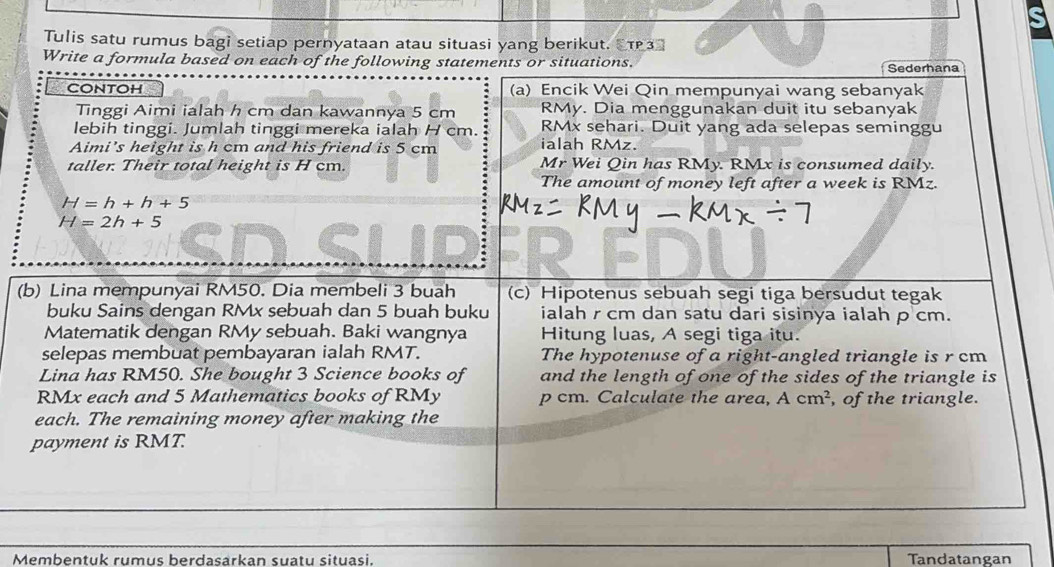 S
Tulis satu rumus bagi setiap pernyataan atau situasi yang berikut. TP 3
Write a formula based on each of the following statements or situations.
Sederhana
CONTOH
Tinggi Aimi ialah h cm dan kawannya 5 cm
lebih tinggi. Jumlah tinggi mereka ialah H cm.
Aimi's height is h cm and his friend is 5 cm
taller. Their total height is H cm.
H = h + h + 5
H = 2h + 5
(a) Encik Wei Qin mempunyai wang sebanyak
RMy. Dia menggunakan duit itu sebanyak
RMx sehari. Duit yang ada selepas seminggu
ialah RMz.
Mr Wei Qin has RMy. RMx is consumed daily.
The amount of money left after a week is RMz.
RMz = RMy - RMx ÷ 7
SD SUPER EDU
(b) Lina mempunyai RM50. Dia membeli 3 buah
buku Sains dengan RMx sebuah dan 5 buah buku
Matematik dengan RMy sebuah. Baki wangnya
selepas membuat pembayaran ialah RMT.
Lina has RM50. She bought 3 Science books of
RMx each and 5 Mathematics books of RMy
each. The remaining money after making the
payment is RMT.
(c) Hipotenus sebuah segi tiga bersudut tegak
ialah r cm dan satu dari sisinya ialah p cm.
Hitung luas, A segi tiga itu.
The hypotenuse of a right-angled triangle is r cm
and the length of one of the sides of the triangle is
p cm. Calculate the area, A cm², of the triangle.
Membentuk rumus berdasarkan suatu situasi.
Tandatangan